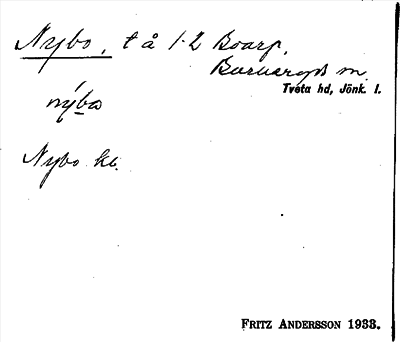 Nybo, t å 1-2 Boarp,
Barkeryds sn.
Tveta hd, Jönk. l.
nýba
Nybo kb.
FRITZ ANDERSSON 1933.